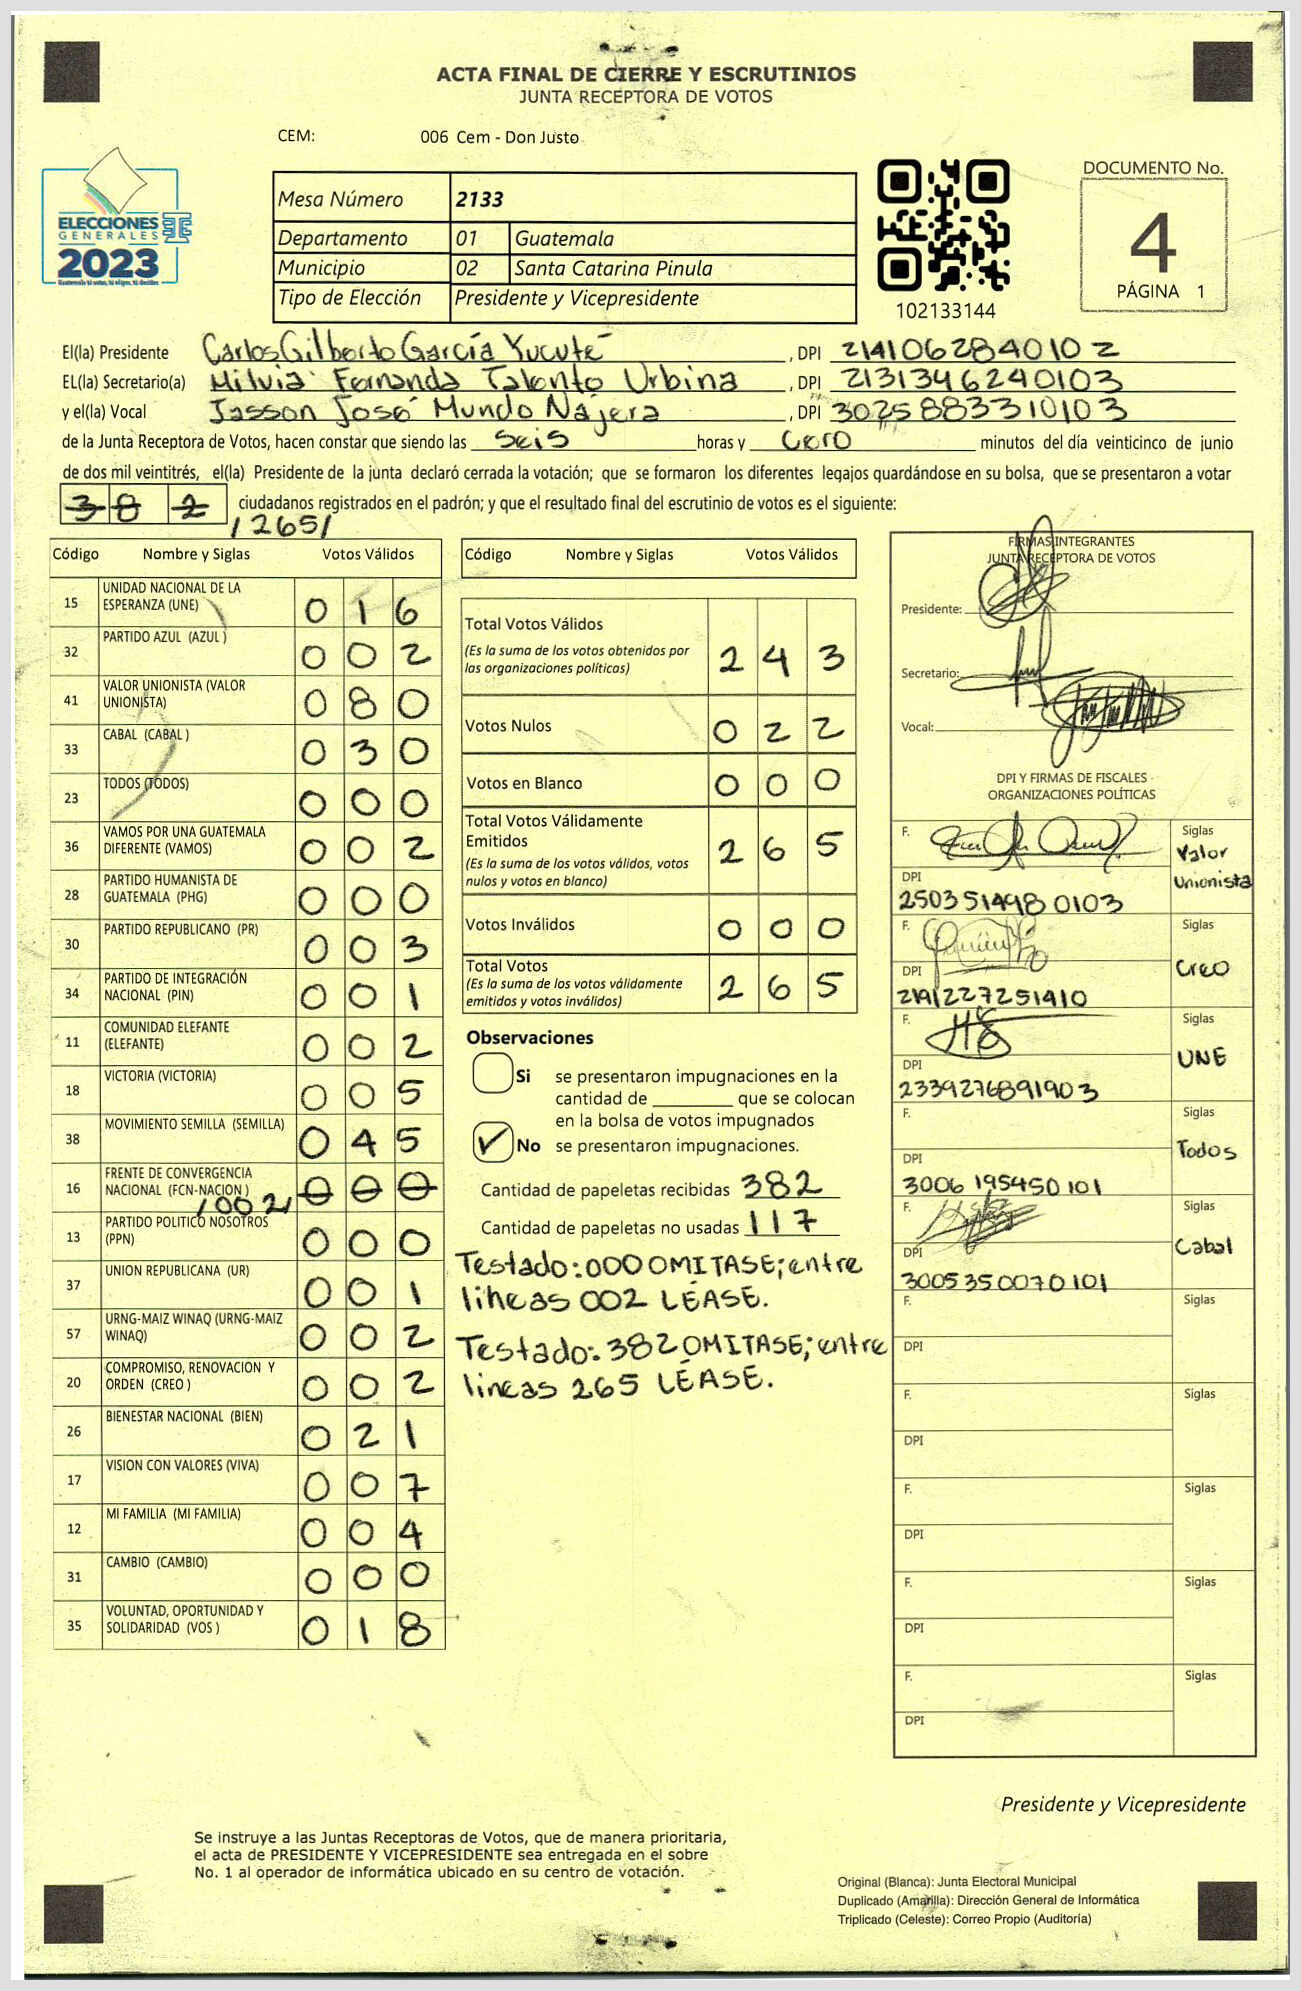 ACTA FINAL DE CIERRE Y ESCRUTINIOS
JUNTA RECEPTORA DE VOTOS
CEM: 006 Cem - Don Justo
ELECCIONES
GENERALES
2023
Guatemala tú votas, tú eliges, tú decides
Mesa Número 2133
Departamento 01 Guatemala
Municipio 02 Santa Catarina Pinula
Tipo de Elección Presidente y Vicepresidente
102133144
DOCUMENTO No.
4
PÁGINA 1
El(la) Presidente Carlos Gilberto García Yucuté, DPI 2141062840102
EL(la) Secretario(a) Milvia Fernanda Talento Urbina, DPI 2131346240103
y el(la) Vocal Jasson José Mundo Nájera, DPI 3025883310103
de la Junta Receptora de Votos, hacen constar que siendo las seis horas y cero minutos del día veinticinco de junio
de dos mil veintitrés, el(la) Presidente de la junta declaró cerrada la votación; que se formaron los diferentes legajos guardándose en su bolsa, que se presentaron a votar
382 ciudadanos registrados en el padrón; y que el resultado final del escrutinio de votos es el siguiente:
/265/
Código Nombre y Siglas Votos Válidos
15 UNIDAD NACIONAL DE LA ESPERANZA (UNE) 016
32 PARTIDO AZUL (AZUL ) 002
41 VALOR UNIONISTA (VALOR UNIONISTA) 080
33 CABAL (CABAL ) 030
23 TODOS (TODOS) 000
36 VAMOS POR UNA GUATEMALA DIFERENTE (VAMOS) 002
28 PARTIDO HUMANISTA DE GUATEMALA (PHG) 000
30 PARTIDO REPUBLICANO (PR) 003
34 PARTIDO DE INTEGRACIÓN NACIONAL (PIN) 001
11 COMUNIDAD ELEFANTE (ELEFANTE) 002
18 VICTORIA (VICTORIA) 005
38 MOVIMIENTO SEMILLA (SEMILLA) 045
16 FRENTE DE CONVERGENCIA NACIONAL (FCN-NACION ) 000
/002/
13 PARTIDO POLITICO NOSOTROS (PPN) 000
37 UNION REPUBLICANA (UR) 001
57 URNG-MAIZ WINAQ (URNG-MAIZ WINAQ) 002
20 COMPROMISO, RENOVACION Y ORDEN (CREO ) 002
26 BIENESTAR NACIONAL (BIEN) 021
17 VISION CON VALORES (VIVA) 007
12 MI FAMILIA (MI FAMILIA) 004
31 CAMBIO (CAMBIO) 000
35 VOLUNTAD, OPORTUNIDAD Y SOLIDARIDAD (VOS ) 018
Código Nombre y Siglas Votos Válidos
Total Votos Válidos 243
(Es la suma de los votos obtenidos por las organizaciones políticas)
Votos Nulos 022
Votos en Blanco 000
Total Votos Válidamente Emitidos 265
(Es la suma de los votos válidos, votos nulos y votos en blanco)
Votos Inválidos 000
Total Votos 265
(Es la suma de los votos válidamente emitidos y votos inválidos)
Observaciones
Si se presentaron impugnaciones en la
cantidad de ________ que se colocan
en la bolsa de votos impugnados
✓ No se presentaron impugnaciones.
Cantidad de papeletas recibidas 382
Cantidad de papeletas no usadas 117
Testado: 000 OMITASE; entre
lineas 002 LÉASE.
Testado: 382 OMITASE; entre
lineas 265 LÉASE.
FIRMAS INTEGRANTES
JUNTA RECEPTORA DE VOTOS
Presidente:
Secretario:
Vocal:
DPI Y FIRMAS DE FISCALES
ORGANIZACIONES POLÍTICAS
F. Siglas Valor Unionista
DPI 2503514980103
F. Siglas Creo
DPI 2191227251410
F. Siglas UNE
DPI 2339276891903
F. Siglas Todos
DPI 3006195450101
F. Siglas Cabal
DPI 3005350070101
F. Siglas
DPI
F. Siglas
DPI
F. Siglas
DPI
F. Siglas
DPI
F. Siglas
DPI
Presidente y Vicepresidente
Se instruye a las Juntas Receptoras de Votos, que de manera prioritaria,
el acta de PRESIDENTE Y VICEPRESIDENTE sea entregada en el sobre
No. 1 al operador de informática ubicado en su centro de votación.
Original (Blanca): Junta Electoral Municipal
Duplicado (Amarilla): Dirección General de Informática
Triplicado (Celeste): Correo Propio (Auditoría)